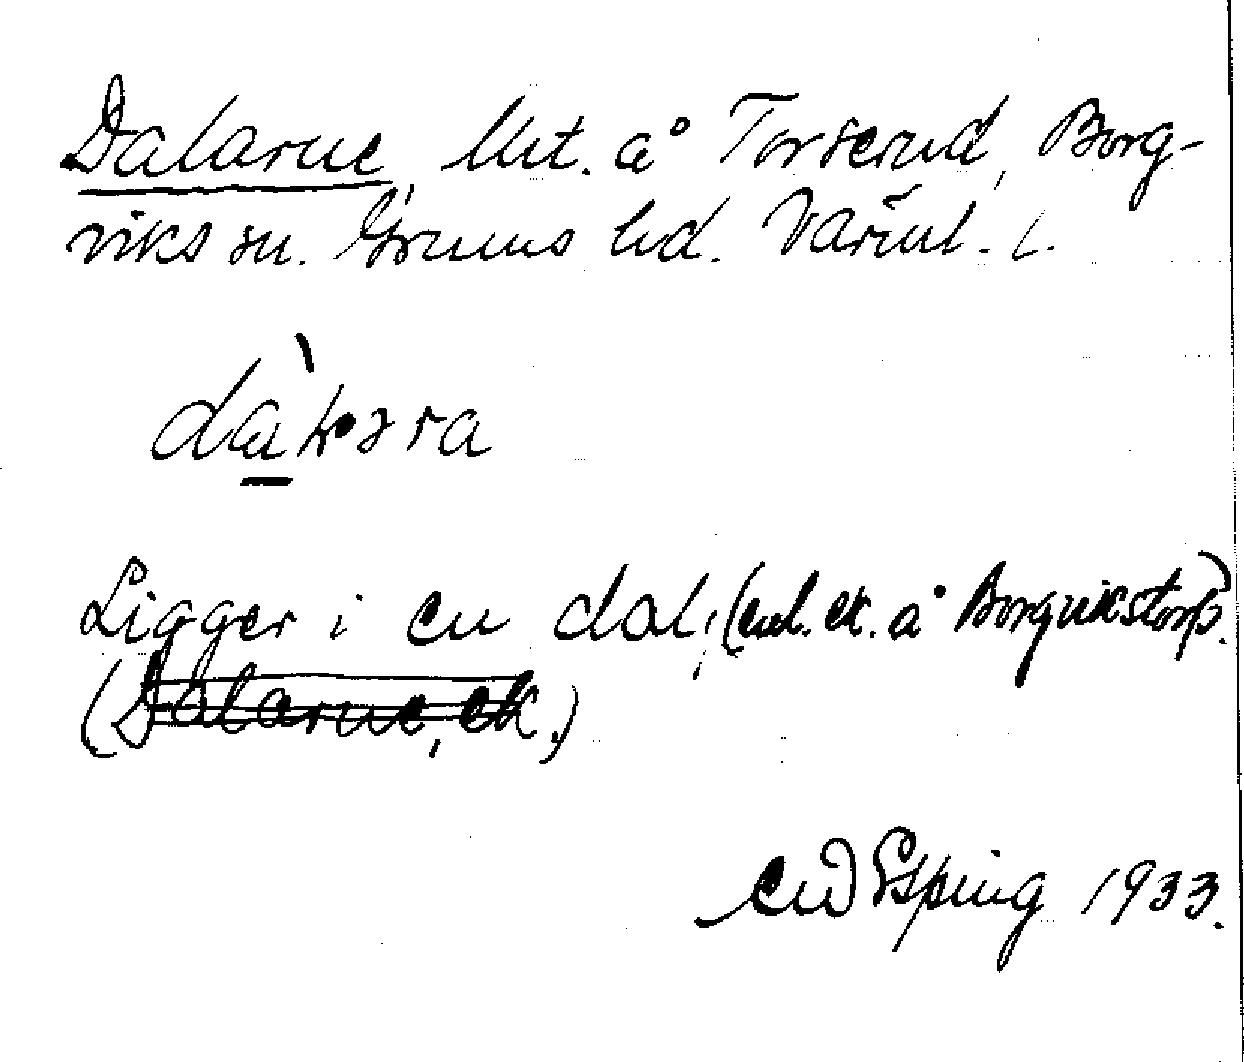 Dalarne, lht. å Torserud, Borg-
viks sn. Grums hd. Värml. l.
Ligger i en dal; (enl. ek. å Borgvikstorp.)
(Dalarne, ek.)
Esping 1933.